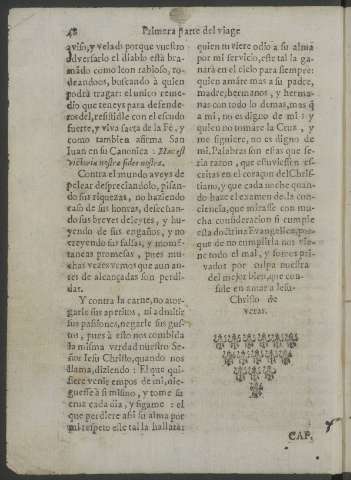 48 Primera parte del viage
aviso, y velad: porque vuestro
adversario el diablo està bra-
mãdo como leon rabioso, ro-
deandoos, buscando à quien
podrà tragar: el unico reme-
dio que teneys para defende-
ros del, resistidle con el escudo
fuerte, y viva sacta de la Fè, y
como tambien afirma San
Iuan en su Canonica: Hæc est
victoria nostra fides nostra.
Contra el mundo aveys de
pelear despreciandolo, pisan-
do sus riquezas, no haziendo
caso de sus honras, desechan-
do sus breves deleytes, y hu-
yendo de sus engaños, y no
creyendo sus falsas, y momẽ-
taneas promesas, pues mu-
chas vezes vemos que aun an-
tes de alcançadas son perdi-
das.
Y contra la carne, no ator-
garle sus apetitos, ni admitir
sus passiones, negarle sus gus-
tos, pues à esto nos combida
la misma verdad nuestro Se-
ñor Iesu Christo, quando nos
llama, diziendo: El que qui-
siere venir empos de mi, nie-
guesse à si mismo, y tome su
cruz cada dia, y sigame: el
que perdiere assi su alma por
mi respeto este tal la hallarà:
quien tuviere odio à su alma
por mi servicio, este tal la ga-
narà en el ciclo para siempre:
quien amàre mas a su padre,
madre, hermanos, y herma-
nas con todo lo demas, mas q̃
a mi, no es digno de mi: y
quien no tomàre la Cruz, y
me siguiere, no es digno de
mi. Palabras son estas que se-
ria razon, que estuviessen es-
critas en el coraçon del Chris-
tiano, y que cada noche quan-
do haze el examen de la con-
ciencia, que mirasse con mu-
cha consideracion si cumple
esta doctrina Evangelica, por-
que de no cumplirla nos vie-
ne todo el mal, y somos pri-
vados por culpa nuestra
del mejor bien, que con-
siste en amar a Iesu-
Christo de
veras.
CAP.